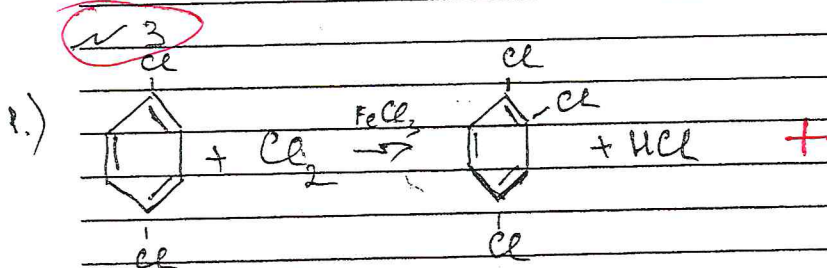 № 3
Cl Cl
1.) + Cl₂ FeCl₃ → Cl + HCl +
Cl Cl